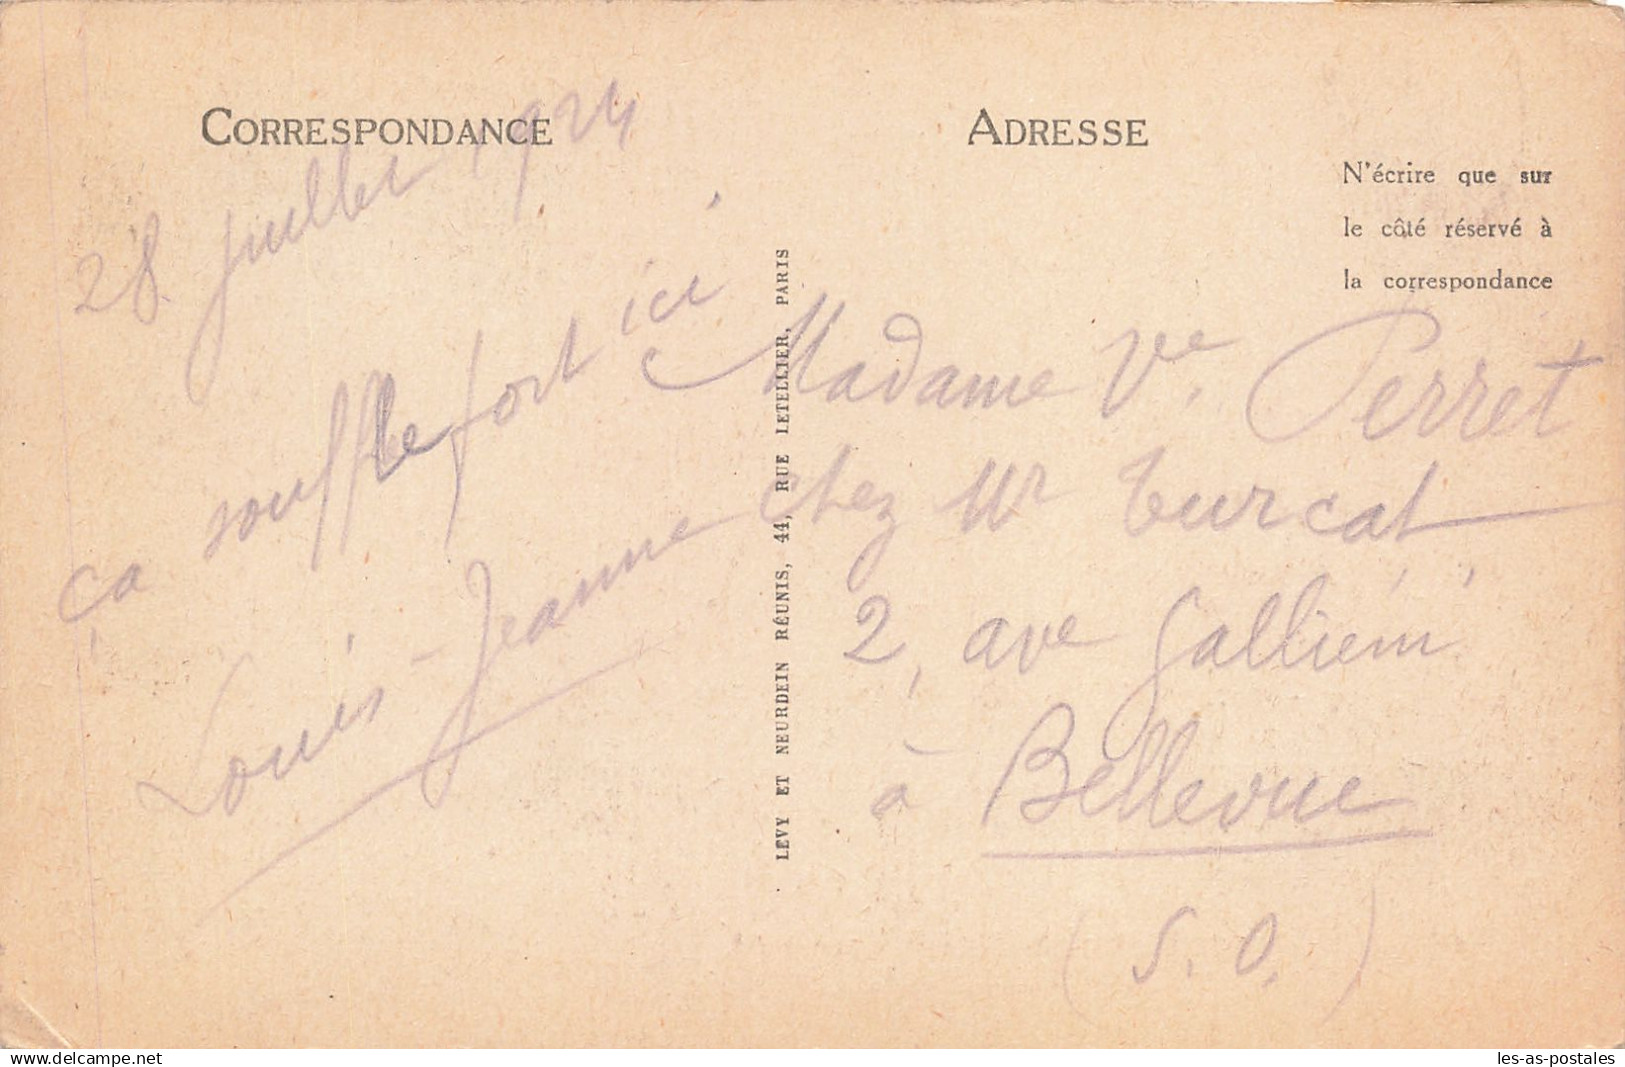 CORRESPONDANCE
28 Juillet 1924
ça souffle fort ici
Louis-Jeanne
LÉVY ET NEURDEIN RÉUNIS, 44, RUE LETELLIER, PARIS
ADRESSE
N'écrire que sur
le côté réservé à
la correspondance
Madame Ve. Perret
chez Mr Turcat,
2, ave Galliéni
à Bellevue
(S. O.)
delcampe.net
les-as-postales